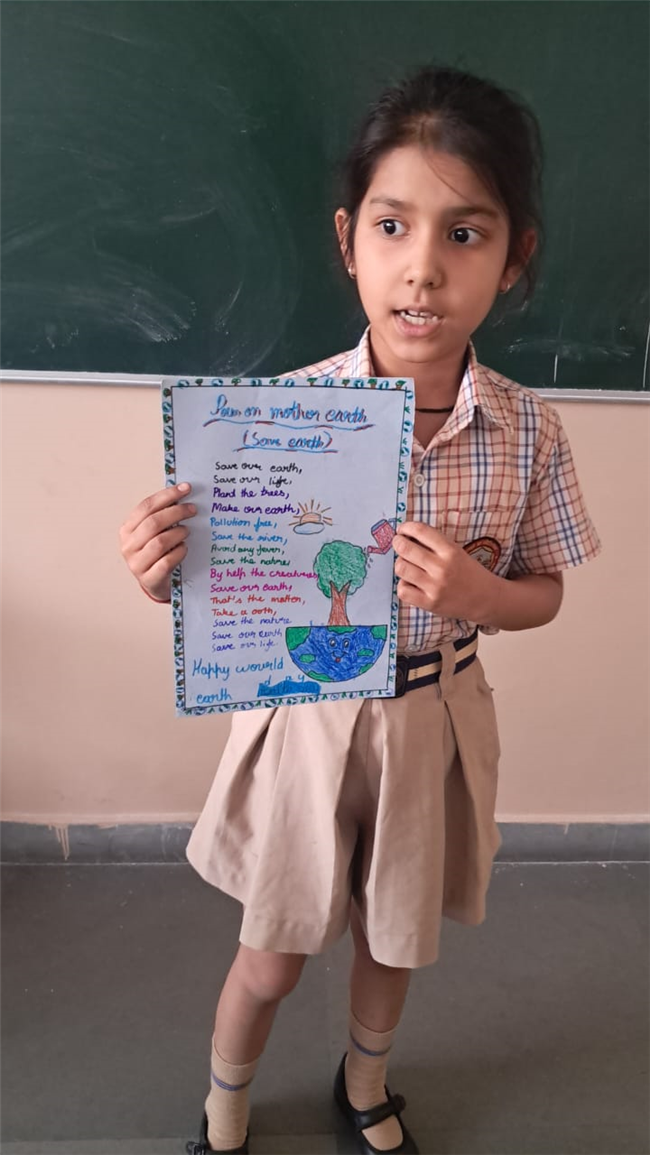 Poem on mother earth
(Save earth)
Save our earth,
Save our life,
Plant the trees,
Make our earth,
Pollution free,
Save the river,
Avoid any fever,
Save the nature
By help the creatures,
Save our earth,
That's the matter,
Take a ooth,
Save the nature
Save our earth
Save our life
Happy wourld
earth day